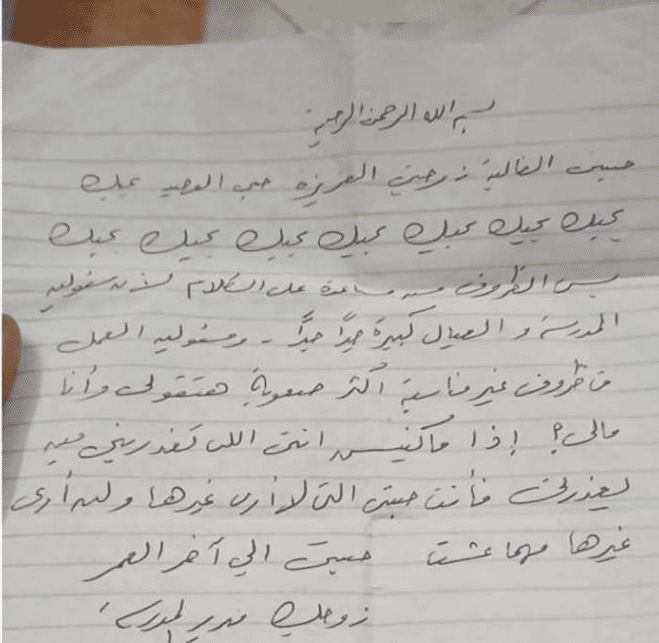 بسم الله الرحمن الرحيم
حبيبتى الغالية زوجتى العزيزه حبى الوحيد بحبك
بحبك بحبك بحبك بحبك بحبك بحبك بحبك
بس الظروف مش مساعدة على الكلام لأن مسئولية
المدرسة والعيال كبيرة جداً جداً - ومسئولية العمل
فى ظروف غير مناسبة أكثر صعوبة هتقولى وأنا
مالى؟ إذا ماكنتيش انتى اللى تعذرينى مين
يعذرنى فأنت حبيبتى التى لا أرى غيرها ولن أرى
غيرها مهما عشت حبيبتى الي آخر العمر
زوجك مدير المدرسة